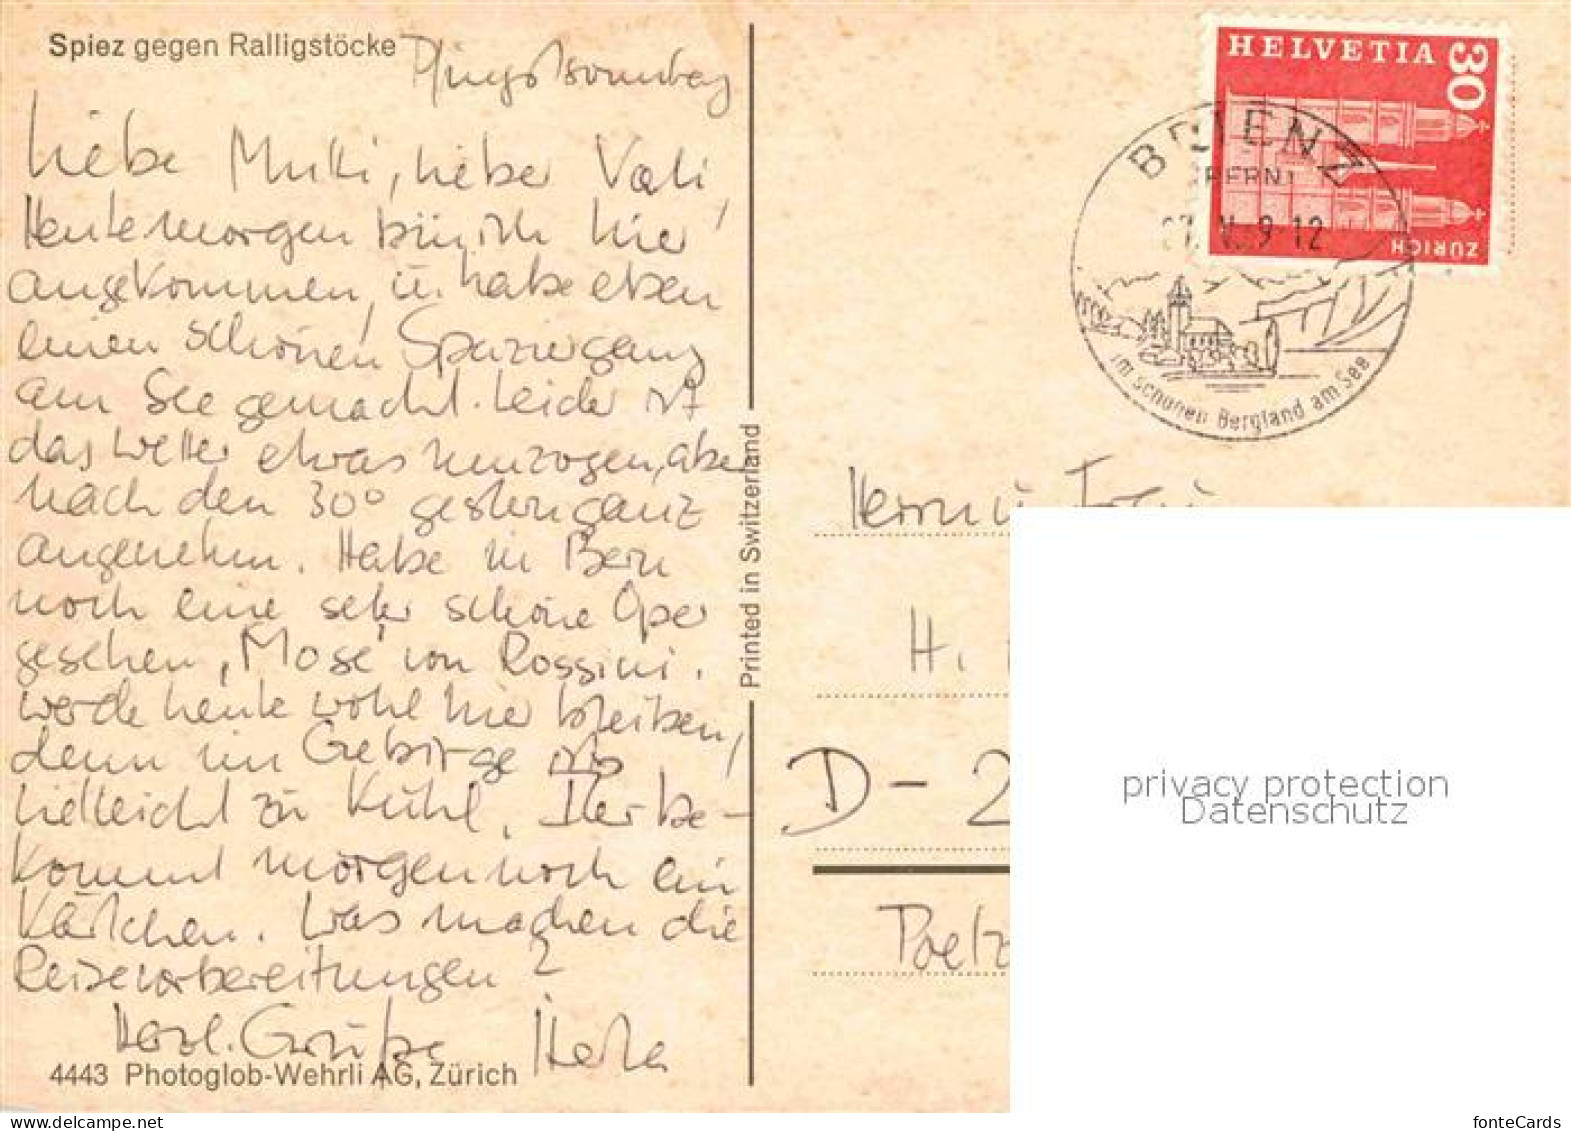 Spiez gegen Ralligstöcke
Pfingstsonntag
Liebe Mutti, lieber Vati,
Heute morgen bin ich hier
angekommen, u. habe eben
einen schönen Spaziergang
am See gemacht. Leider ist
das Wetter etwas umzogen, aber
nach den 30° gestern ganz
angenehm. Habe in Bern
noch eine sehr schöne Oper
gesehen, Mosé von Rossini.
werde heute wohl hier bleiben,
denn im Gebirge ists
vielleicht zu kühl. be-
kommt morgen noch ein
Kärtchen. Was machen die
Reisevorbereitungen?
Herzl. Grüße
4443 Photoglob-Wehrli AG, Zürich
Printed in Switzerland
HELVETIA 30
ZÜRICH
BRIENZ
(BERN)
V. 9-12
im schönen Bergland am See
Herrn u.
H.
D-2
Poelz
privacy protection
Datenschutz
fonteCards